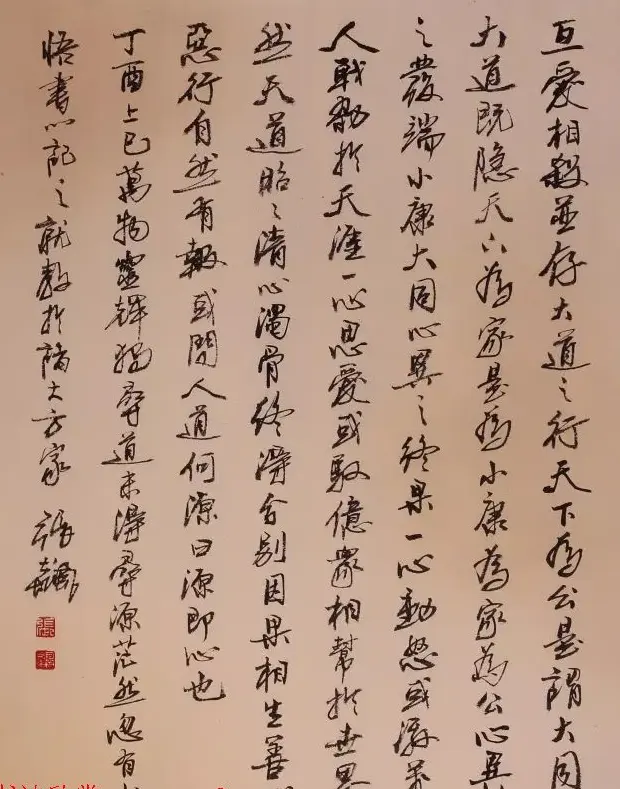 互愛相殺並存大道之行天下為公是謂大同
大道既隐天下為家是為小康為家為公心異
之發端小康大同心異之終果一心動怒或漲萬
人戰勠於天涯一心思愛或馭億眾相幫於世界
然天道昭之清心濁骨終得合别因果相生善
惡行自然有報或問人道何源曰源即心也
丁酉上巳萬物靈鲜獨尋道未得尋源茫然忽有
悟書以記之就教於諸大方家 張